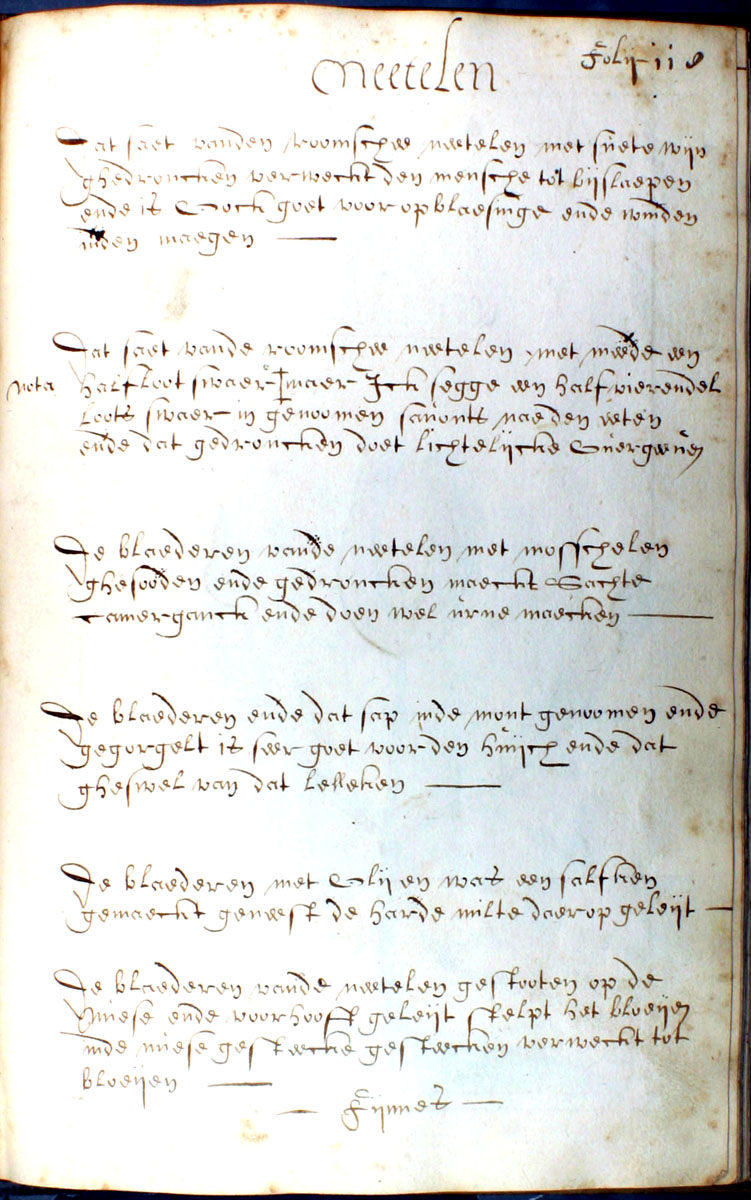 Neetelen
Folij 118
Dat saet vanden roomsche neetelen met suete wijn
ghedroncken verweckt den mensche tot bijslaepen
ende is Oock goet voor opblaesinge ende winden
inden maegen
Dat saet vande roomsche neetelen met meede een
nota half loot swaer maer Ick segge een half vierendel
Loots swaer in genoomen savonts nae den eeten
ende dat gedroncken doet lichtelijcke Overgeeven
De blaederen vande neetelen met mosschelen
ghesooden ende gedroncken maeckt Sachte
camerganck ende doen wel urne maecken
De blaederen ende dat sap inde mont genoomen ende
gegorgelt is seer goet voor den huijch ende dat
gheswel van dat lelleken
De blaederen met Olij en was een salfken
gemaeckt geneest de harde milte daerop geleijt
De blaederen vande neetelen gestooten op de
Niese ende voorhooft geleijt stelpt het bloeijen
inde niese gesteecke gesteecken verweckt tot
bloeijen
Fijnnes